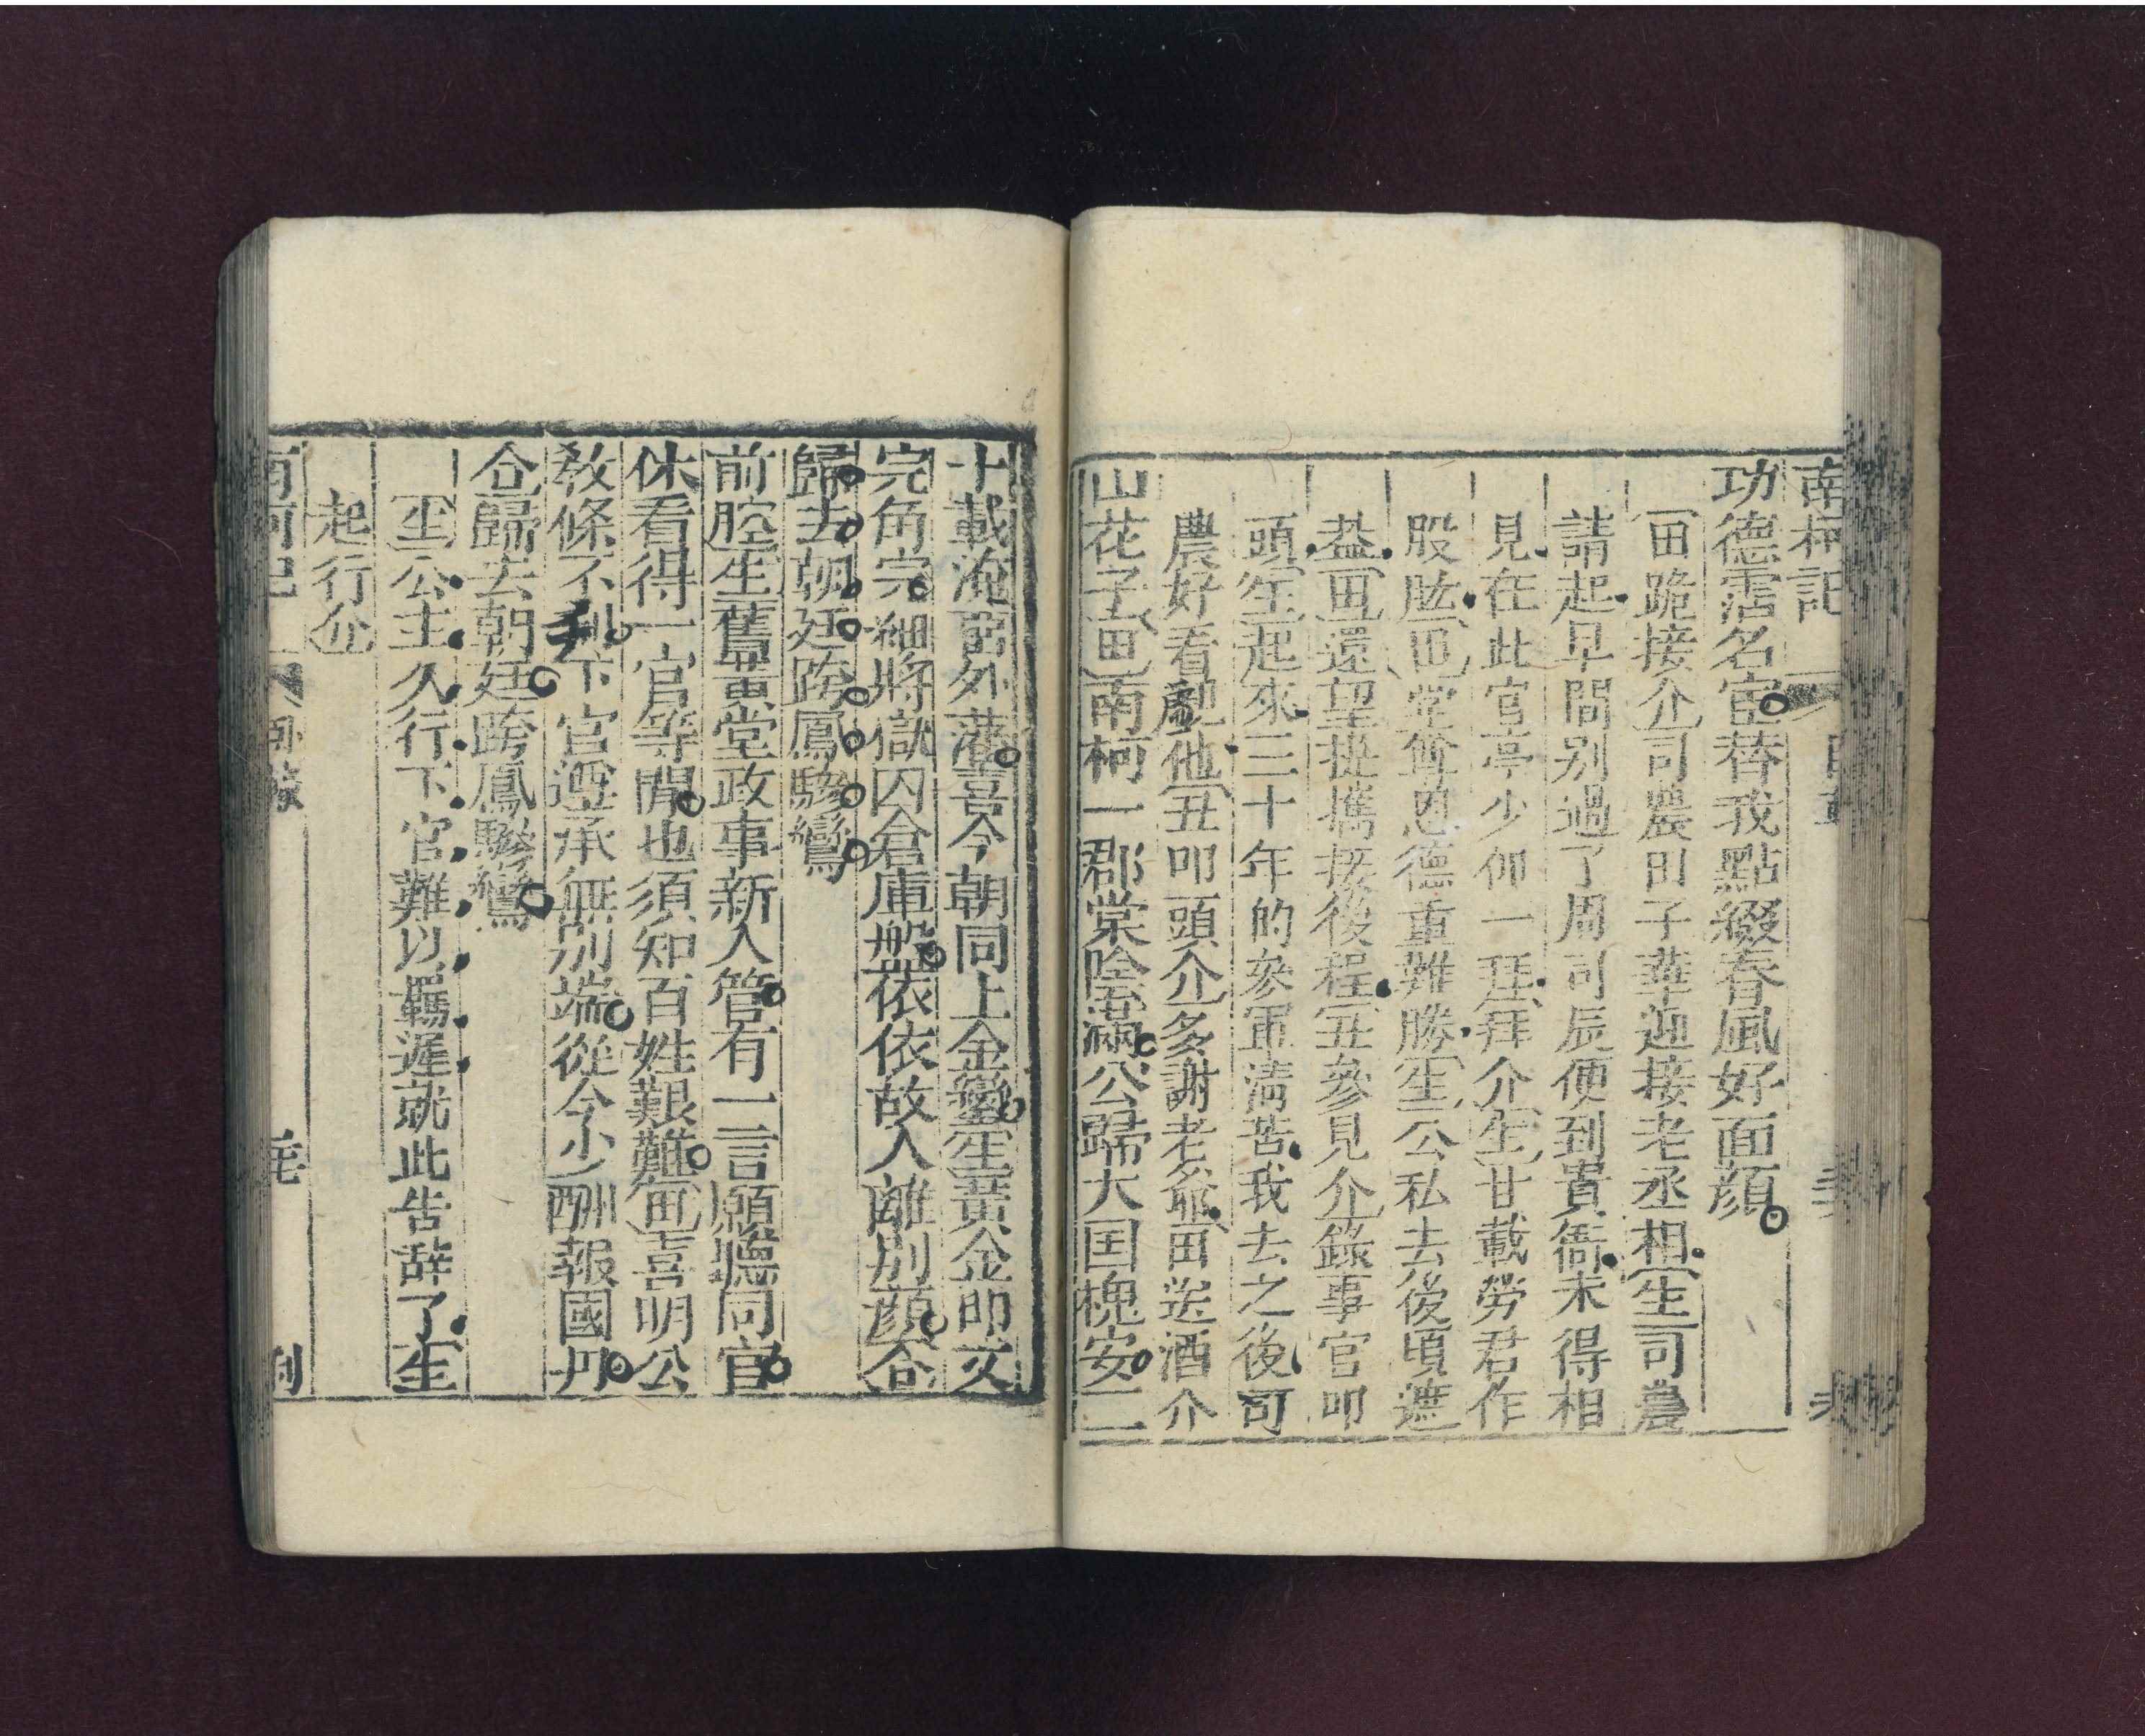 南柯記
功德霑名宦替我點綴春風好面顔
田跪接介司農田子華迎接老丞相生司農
請起早間别過了周司辰便到貴衙未得相
見在此官亭少仰一拜拜介生廿載勞君作
股肱田堂尊恩德重難勝生公私去後頃遮
葢田還望提攜接後程丑參見介錄事官叩
頭生起來三十年的叅軍清苦我去之後司
農好看覷他丑叩頭介多謝老爺田送酒介
山花子田南柯一郡棠陰滿公歸大囯槐安二
十載淹畱外藩喜今朝同上金鑾生黄金印文
完角完細將獄囚倉庫盤依依故人離别顔合
歸去朝廷跨鳳驂鸞
前腔生舊黄堂政事新人管有一言願聽同官
休看得一官等閒也須知百姓艱難田喜明公
教條不刋下官遵承無别端從今少酬報國丹
合歸去朝廷跨鳳驂鸞
生公主久行下官難以羈遲就此告辞了生
起行介
南柯記